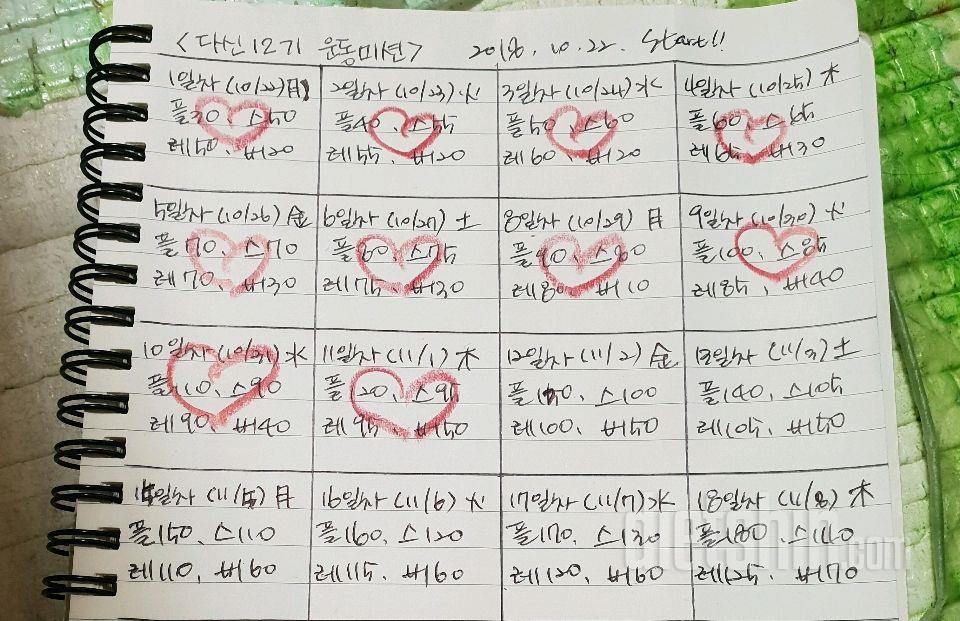 <다신12기 운동미션> 2018. 10. 22. Start!!
1일차 (10/22) 月
플30、스50
레50、버20
2일차 (10/23) 火
플40、스55
레55、버20
3일차 (10/24) 水
플50、스60
레60、버20
4일차 (10/25) 木
플60、스65
레65、버30
5일차 (10/26) 金
플70、스70
레70、버30
6일차 (10/27) 土
플80、스75
레75、버30
8일차 (10/29) 月
플90、스80
레80、버10
9일차 (10/30) 火
플100、스85
레85、버40
10일차 (10/31) 水
플110、스90
레90、버40
11일차 (11/1) 木
플120、스95
레95、버50
12일차 (11/2) 金
플130、스100
레100、버50
13일차 (11/3) 土
플140、스105
레105、버50
15일차 (11/5) 月
플150、스110
레110、버60
16일차 (11/6) 火
플160、스120
레115、버60
17일차 (11/7) 水
플170、스130
레120、버60
18일차 (11/8) 木
플180、스140
레125、버70
dietshin.com